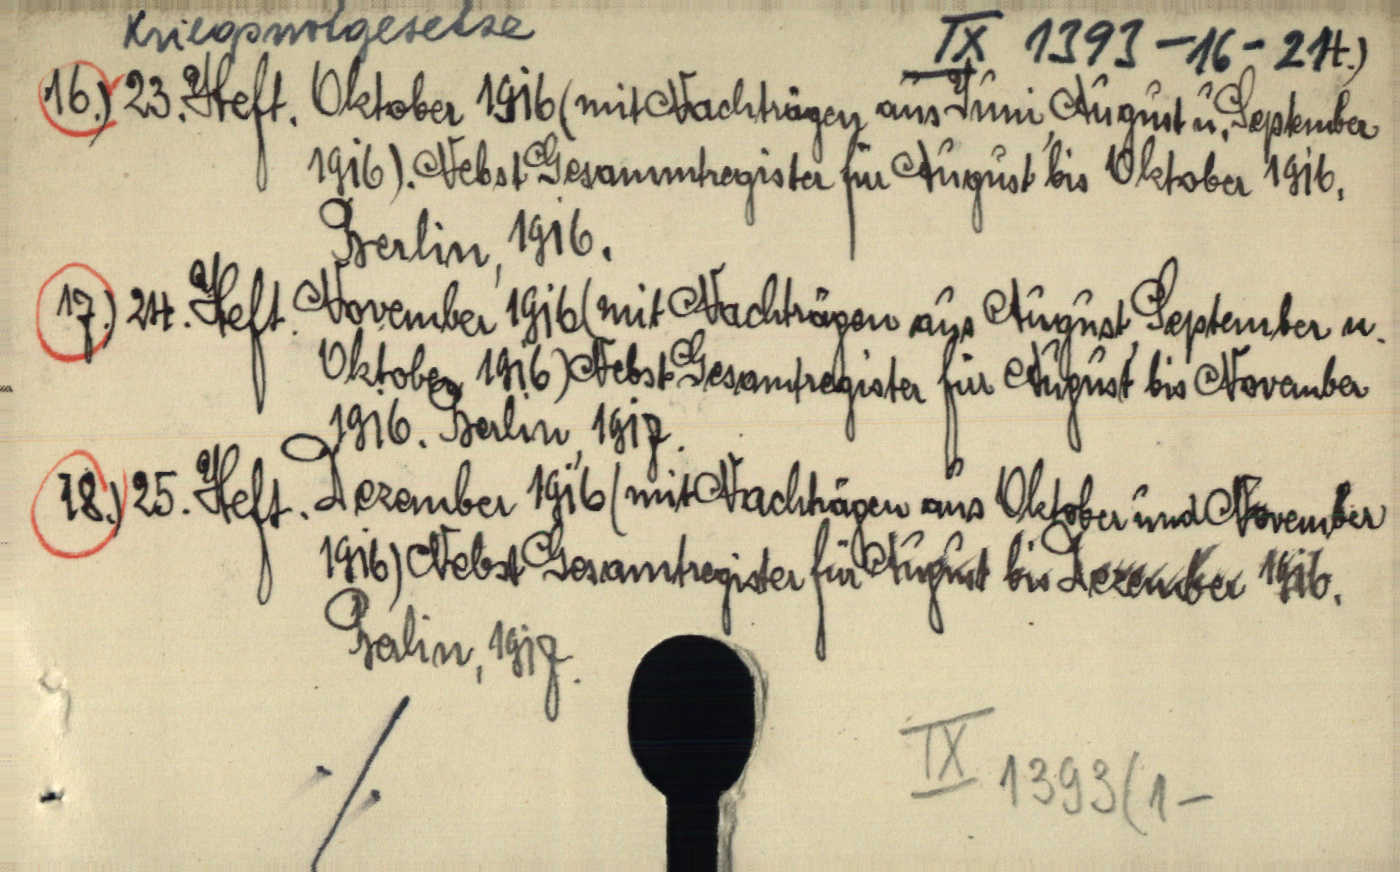 Kriegsnotgesetze
IX 1393 – 16 - 24.)
16.) 23. Heft. Oktober 1916 (mit Nachträgen aus Juni, August u. September
1916). Nebst Gesammtregister für August bis Oktober 1916.
Berlin, 1916.
17.) 24. Heft. November 1916 (mit Nachträgen aus August, September u.
Oktober 1916) Nebst Gesamtregister für August bis November
1916. Berlin, 1917.
18.) 25. Heft. Dezember 1916 (mit Nachträgen aus Oktober und November
1916) Nebst Gesamtregister für August bis Dezember 1916.
Berlin, 1917.
IX 1393 (1 –